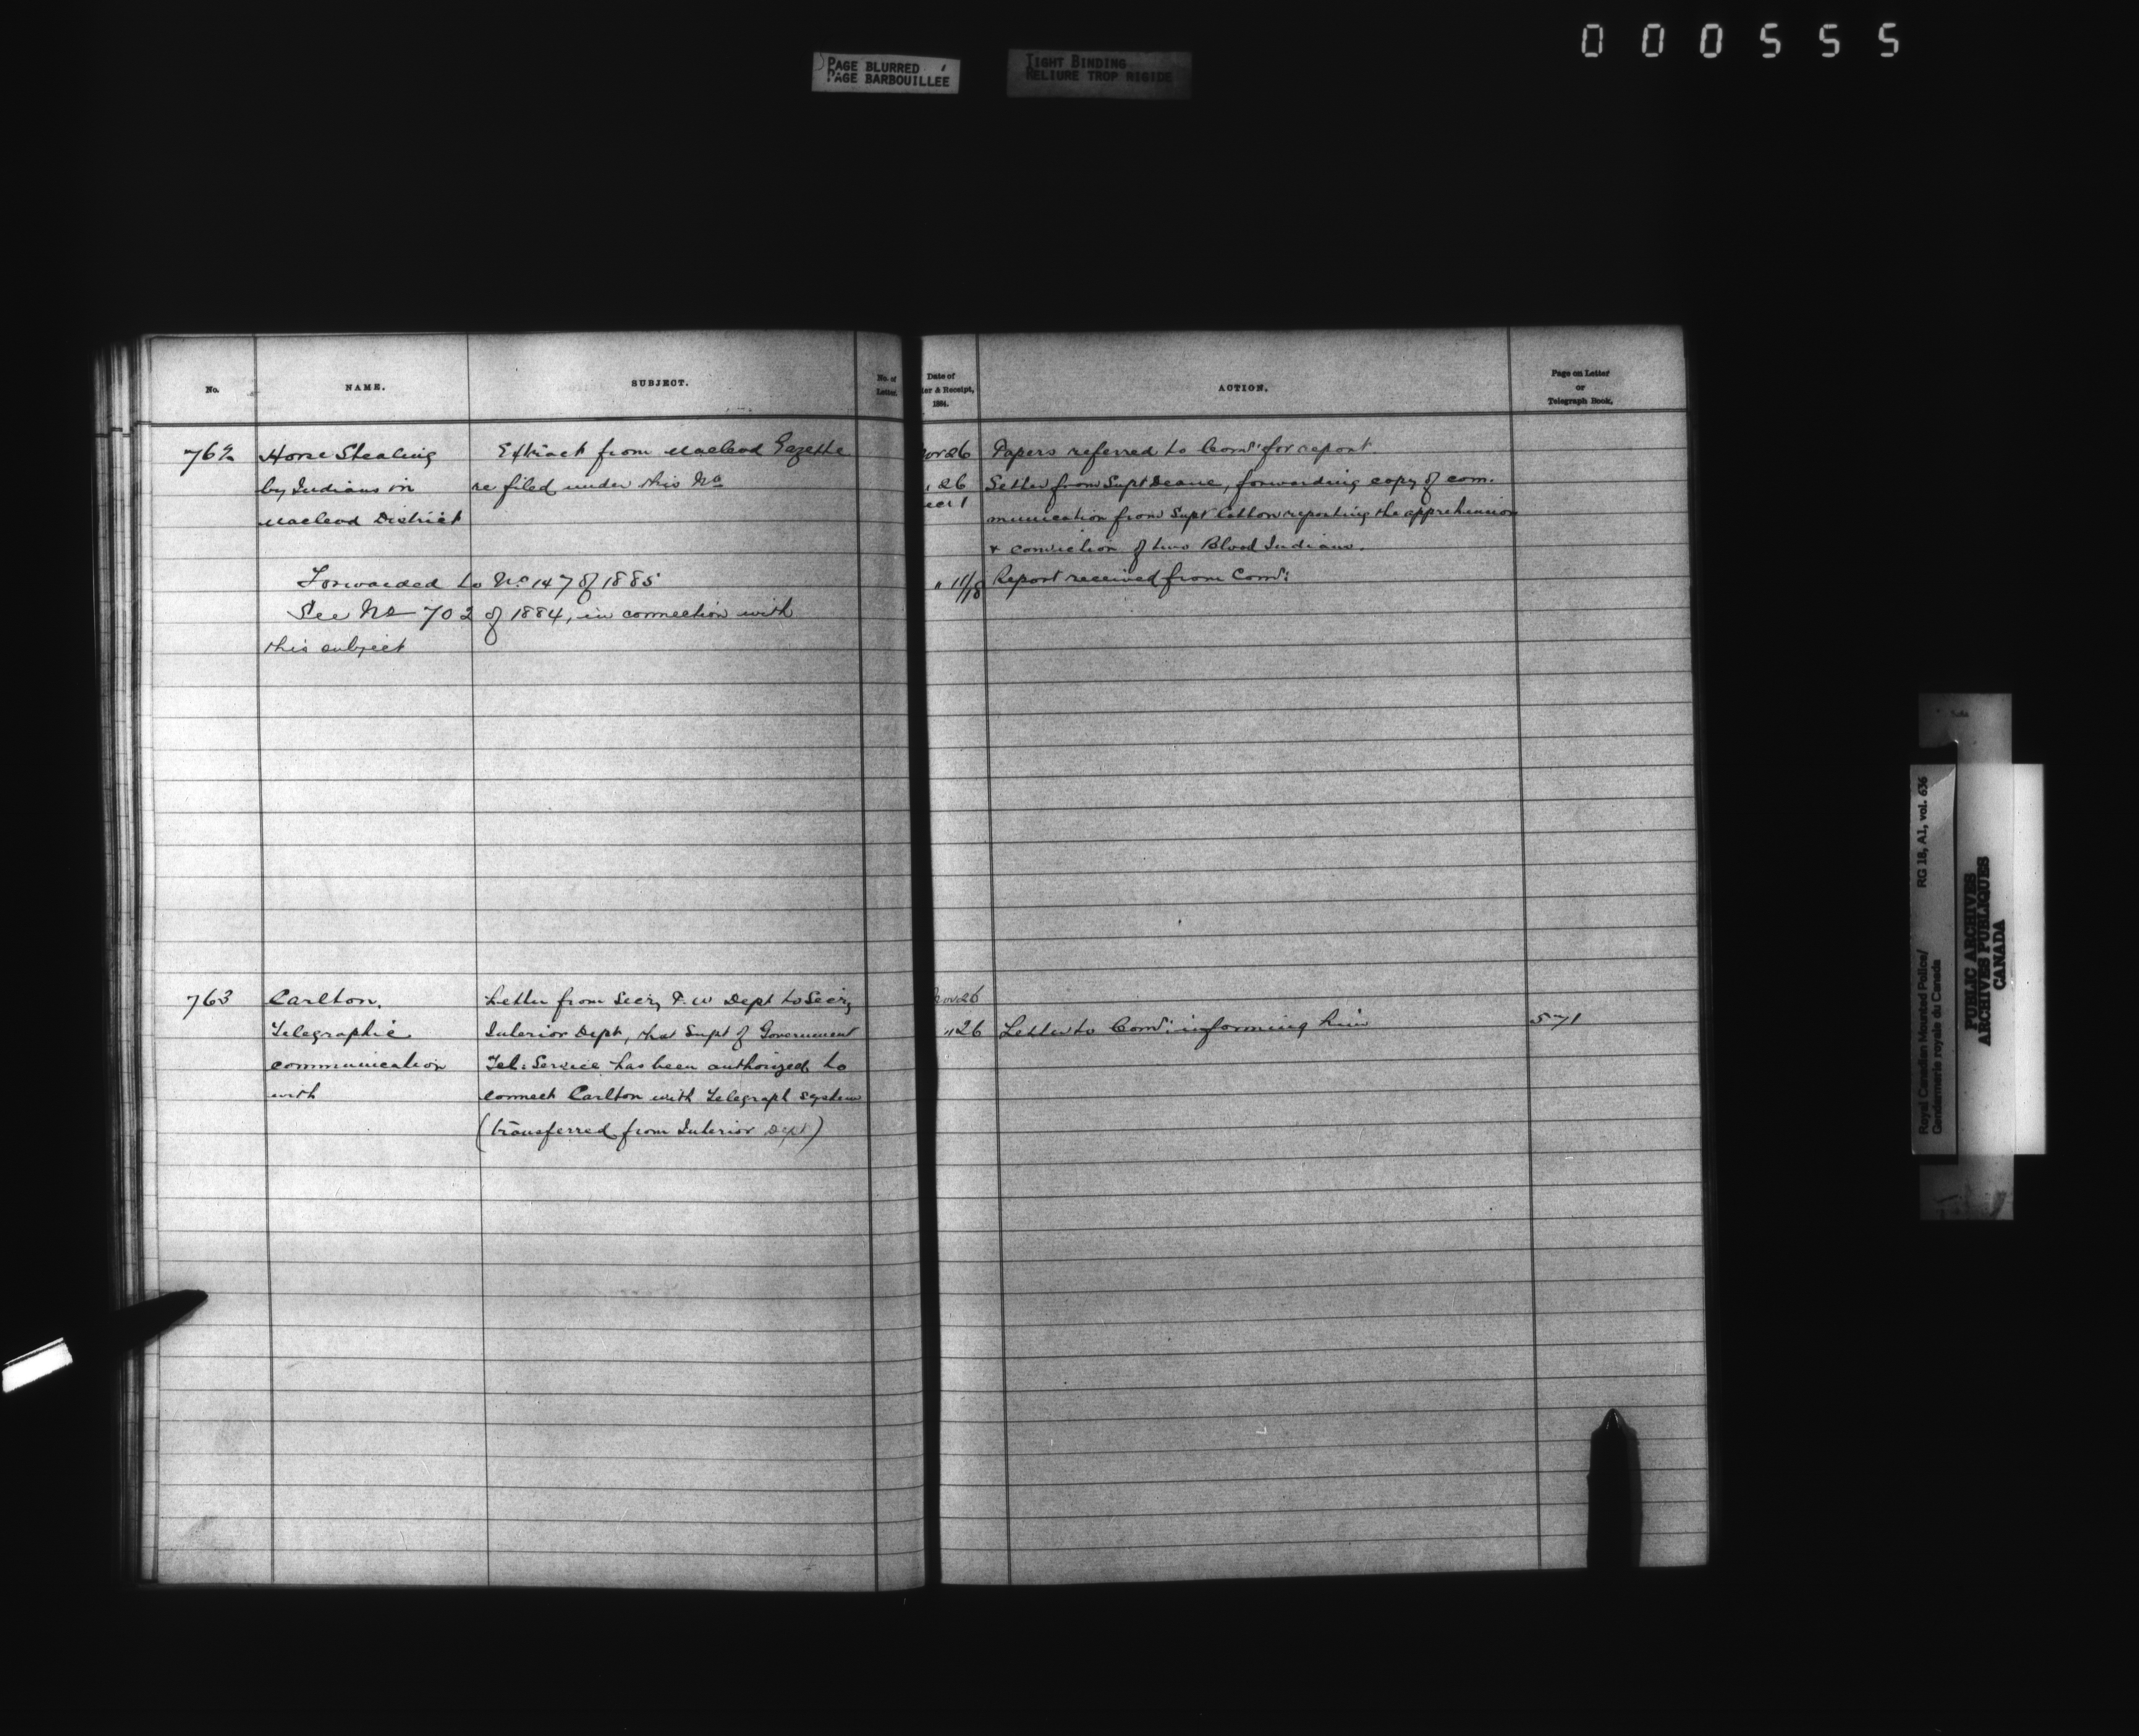 000555
PAGE BLURRED
PAGE BARBOUILLEE
TIGHT BINDING
RELIURE TROP RIGIDE
No.
NAME.
SUBJECT.
No. of
Letter.
Date of
er & Receipt,
1884.
ACTION.
Page on Letter
or
Telegraph Book.
762
Horse Stealing
by Indians in
Macleod District
Extract from Macleod Gazette
re filed under this No
Forwarded to No 147 of 1885
See No 702 of 1884, in connection with
this subject
Nov 26 Papers referred to Comr for report.
" 26 Letter from Supt Deane, forwarding copy of com-
Dec 1 munication from Supt Cotton reporting the apprehension
& conviction of two Blood Indians.
" 11/18 Report received from Comr:
763
Carlton.
Telegraphic
communication
with
Letter from Secy P.W Dept to Secy
Interior Dept, that Supt of Government
Tel: Service has been authorized to
connect Carlton with Telegraph system
(transferred from Interior Dept)
Nov 26
" 26 Letter to Comr informing him 571
Royal Canadian Mounted Police/ RG 18, A1, vol. 636
Gendarmerie royale du Canada
PUBLIC ARCHIVES
ARCHIVES PUBLIQUES
CANADA